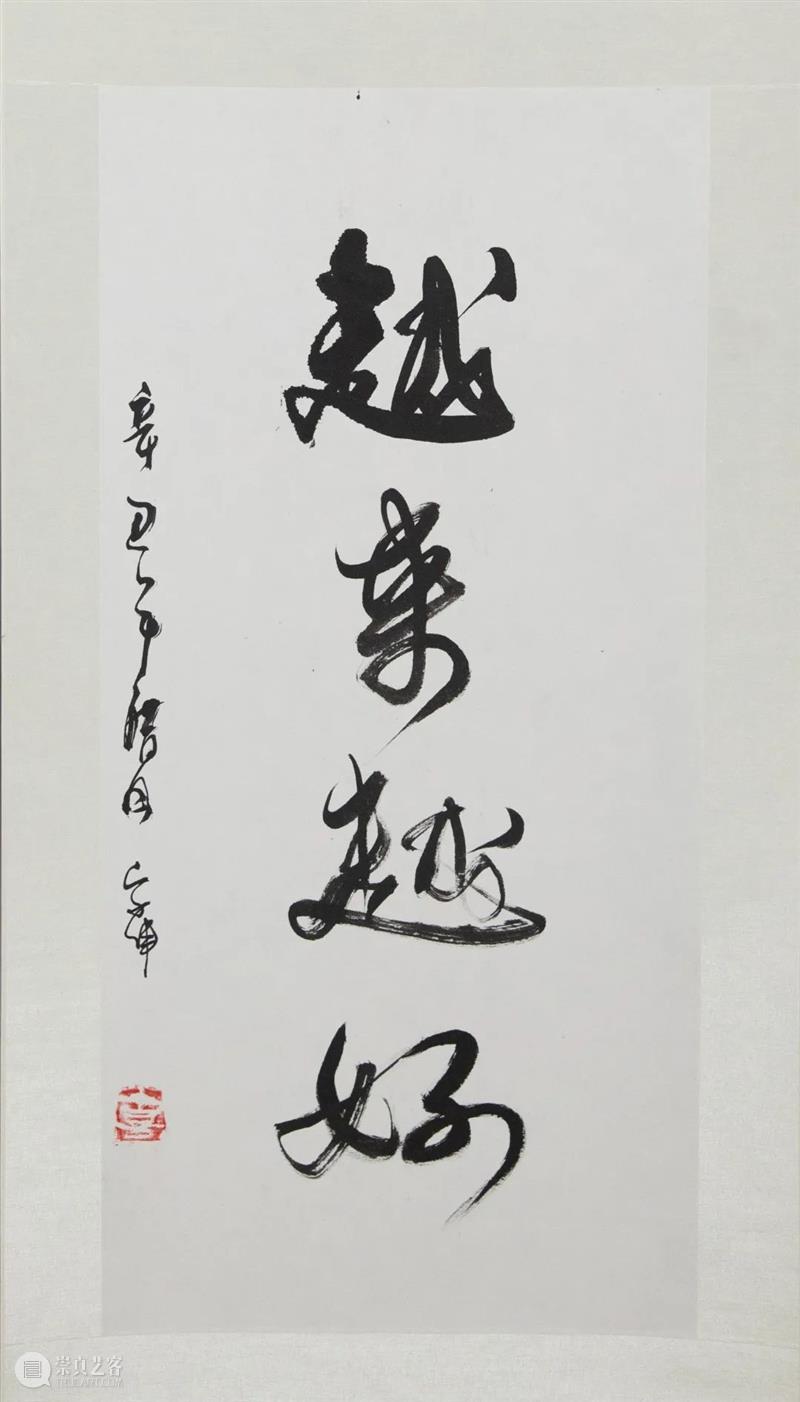 越来越好
辛丑年腊月
崇真艺客
TRUEART.COM